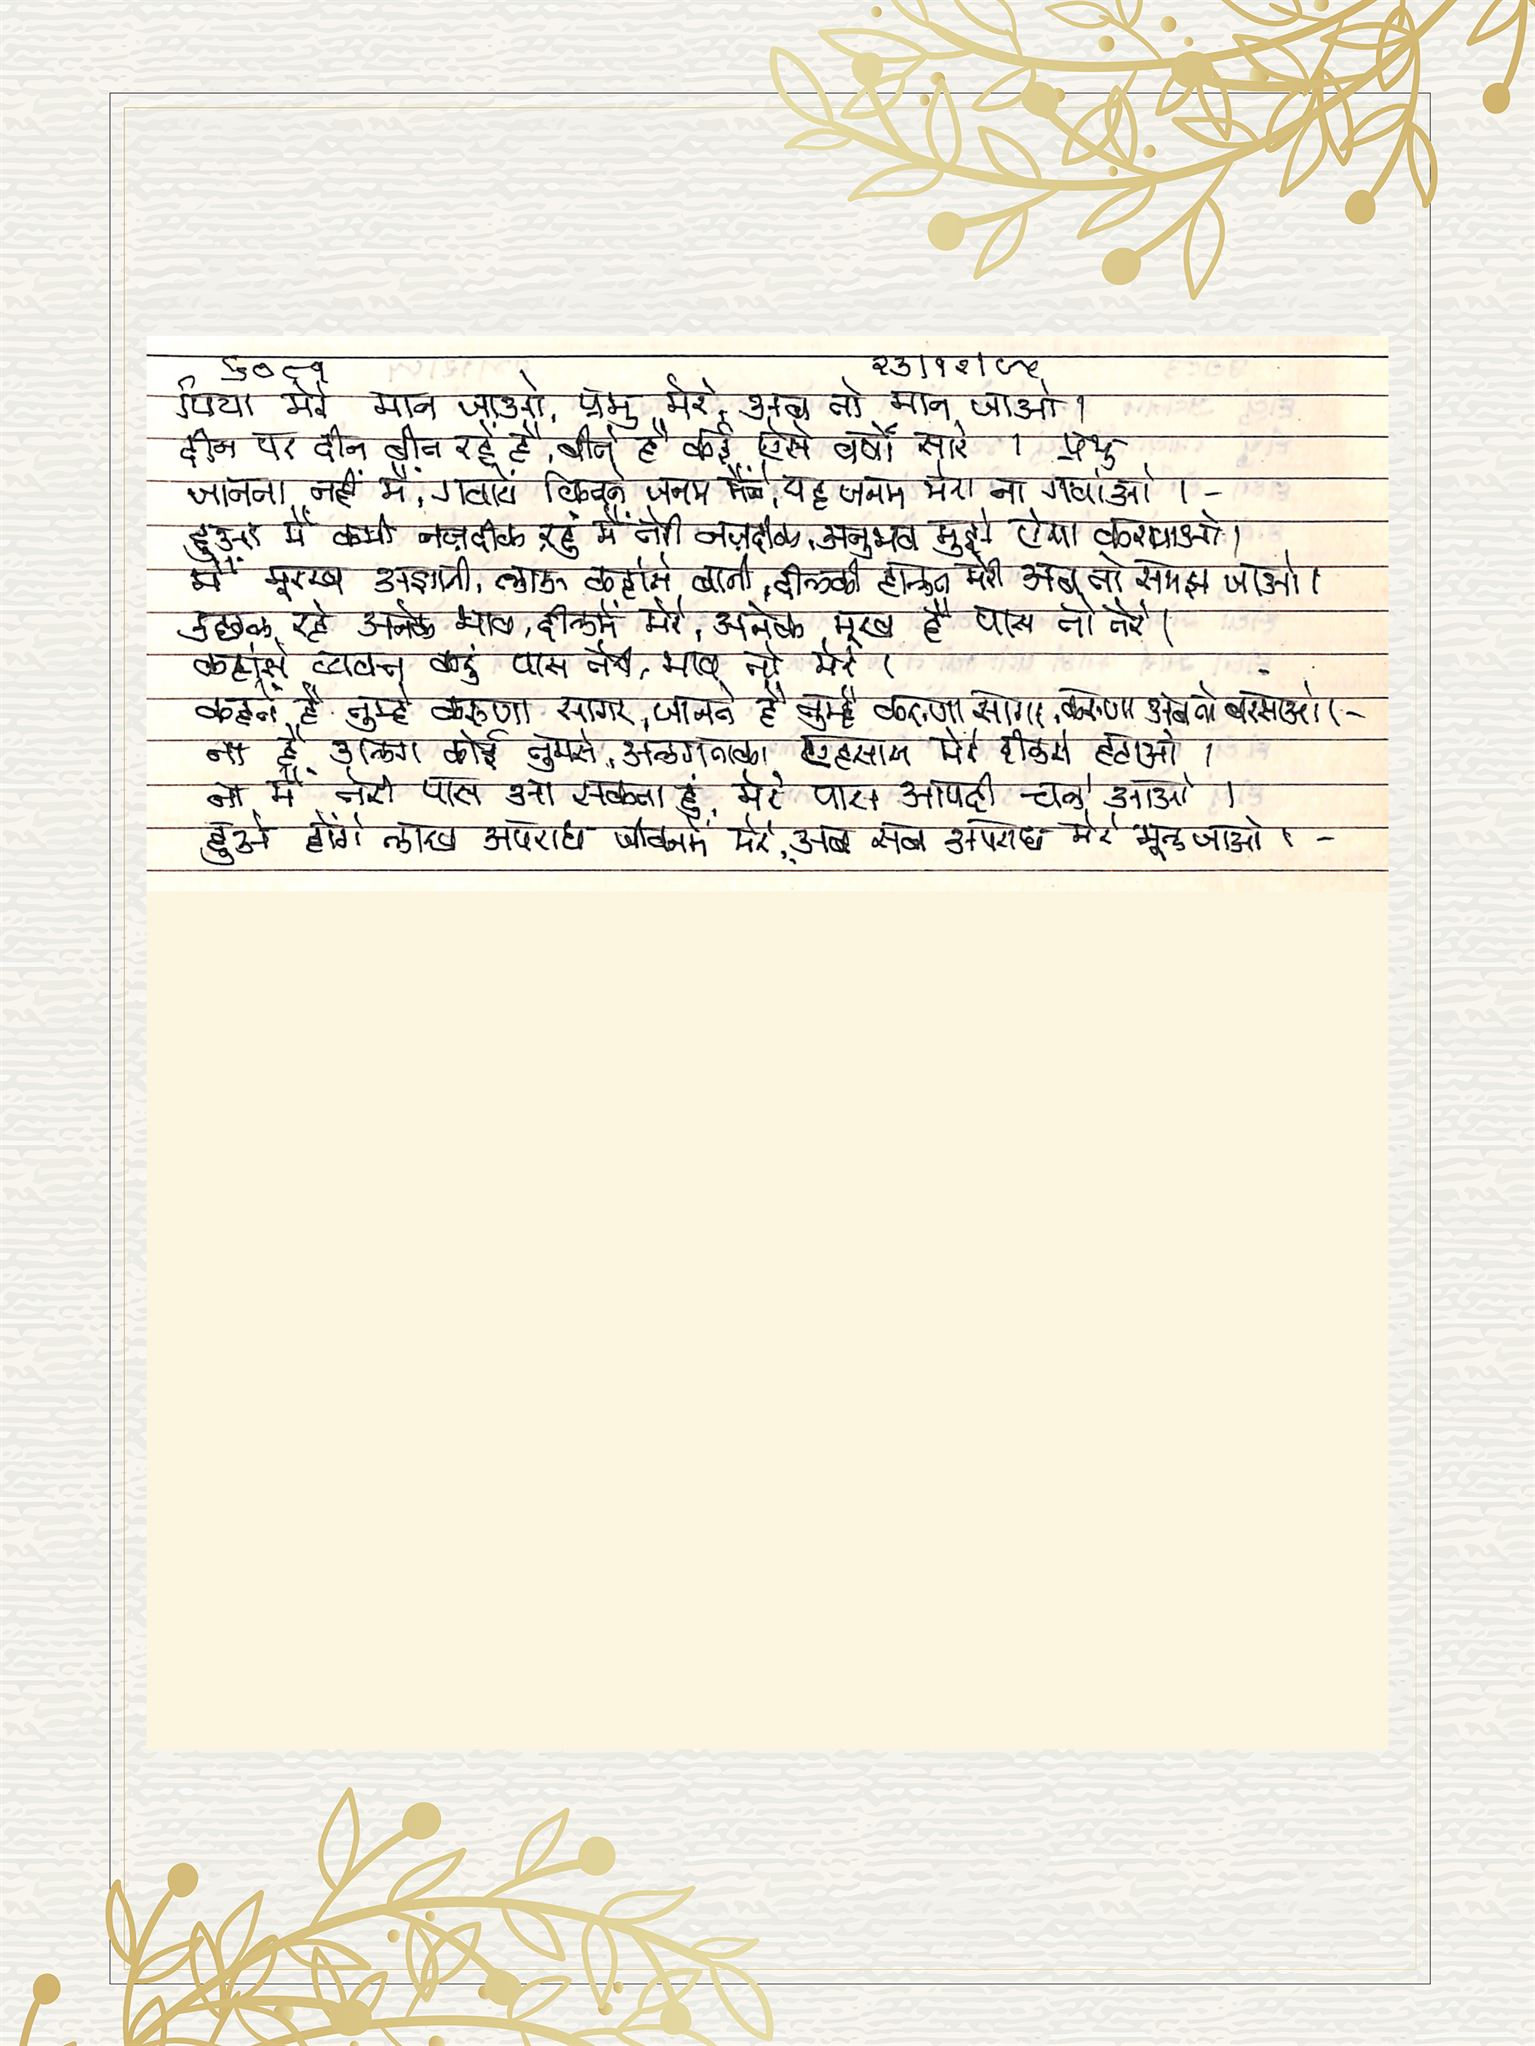 ६०८१ २३।१२।८५
पिया मेरे मान जाओ, प्रभु मेरे, अब तो मान जाओ।
दीन पर दीन बीत रहे है, बीते है कई ऐसे वर्षों सारे । प्रभु
जानता नहीं मैं, गवायें कितने जनम मैंने, यह जनम मेरा ना गवांओ । -
हुआ मैं कभी नज़दीक रहुं मैं तेरी नज़दीक, अनुभव मुझे ऐसा करवाओ।
मैं मूरख अज्ञानी, लाऊ कहांसे बानी, दीलकी हालत मेरी अब तो समझ जाओ।
उछल रहे अनेक भाव, दीलमें मेरे, अनेक मूख है पास तो तेरे।
कहांसे व्यक्त करुं पास तेरे, भाव तो मेरे ।
कहते है तुम्हे करुणा सागर, जानते है तुम्हें करुणा सागर, करुणा अब तो बरसाओ। -
ना है अलग कोई तुमसे, अलगताका एहसास मेरे दीलसे हटाओ ।
ना मैं तेरी पास आ सकता हुं, मेरे पास आपही चले आओ ।
हुओ होंगे लाख अपराध जीवनमें मेरे, अब सब अपराध मेरे भूल जाओ । -